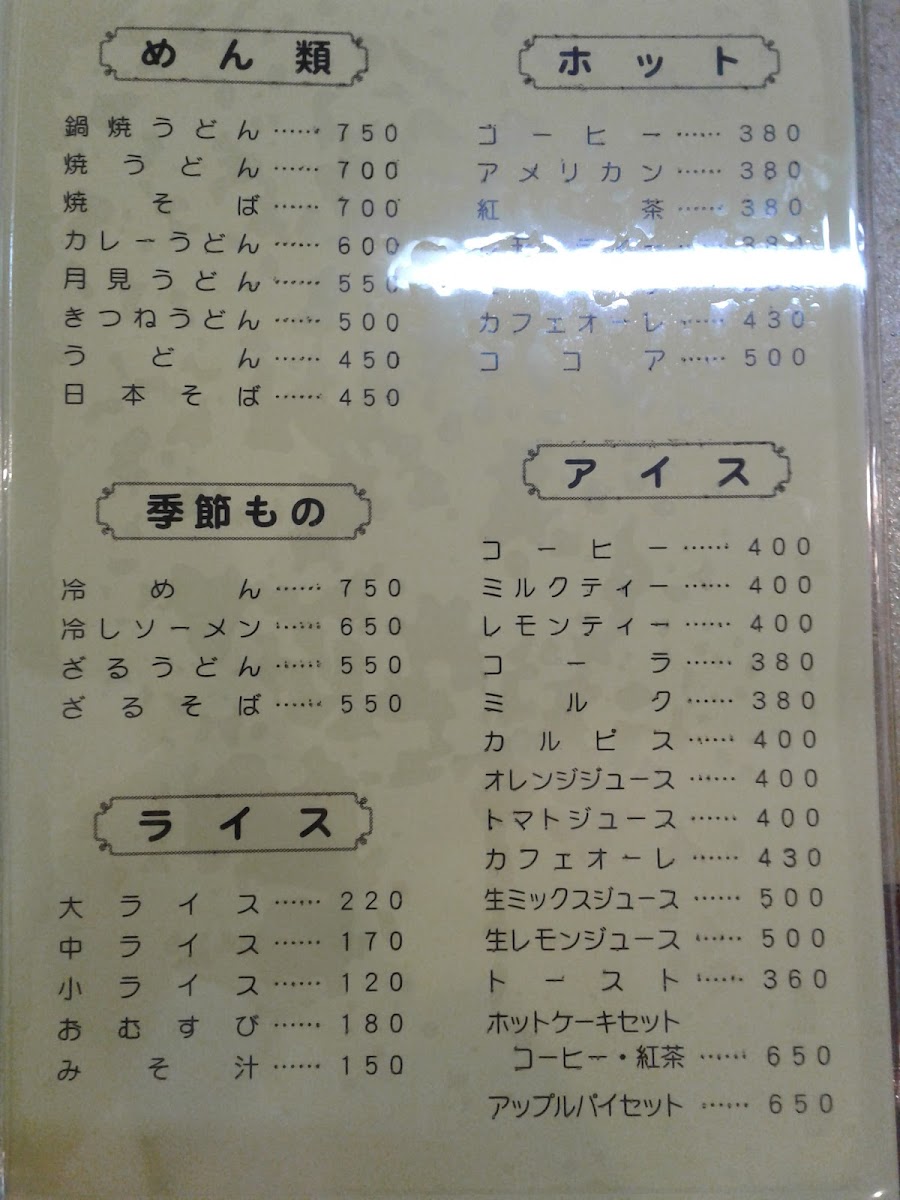 めん類
鍋焼うどん……750
焼うどん……700
焼そば……700
カレーうどん……600
月見うどん……550
きつねうどん……500
うどん……450
日本そば……450
季節もの
冷めん……750
冷しソーメン……650
ざるうどん……550
ざるそば……550
ライス
大ライス……220
中ライス……170
小ライス……120
おむすび……180
みそ汁……150
ホット
コーヒー……380
アメリカン……380
紅茶……380
レモンティー……380
カフェオーレ……430
ココア……500
アイス
コーヒー……400
ミルクティー……400
レモンティー……400
コーラ……380
ミルク……380
カルピス……400
オレンジジュース……400
トマトジュース……400
カフェオーレ……430
生ミックスジュース……500
生レモンジュース……500
トースト……360
ホットケーキセット
コーヒー・紅茶……650
アップルパイセット……650